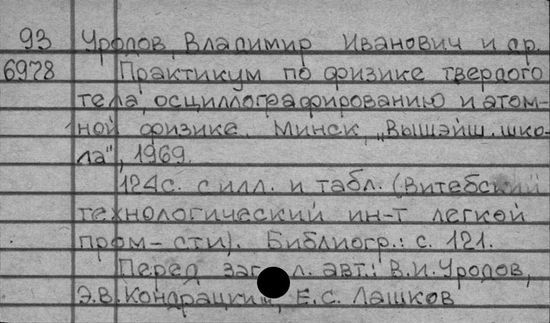 93 Уролов, Владимир Иванович и др.
6978 Практикум по физике твердого
тела, осциллографированию и атом-
ной физике. Минск, „Вышэйш. шко-
ла", 1969.
124с. с илл. и табл. (Витебский
технологический ин-т легкой
пром-сти). Библиогр.: с. 121.
Перед заг. л. авт.: В.И. Уролов,
Э.В. Кондрацкий, Е.С. Лашков